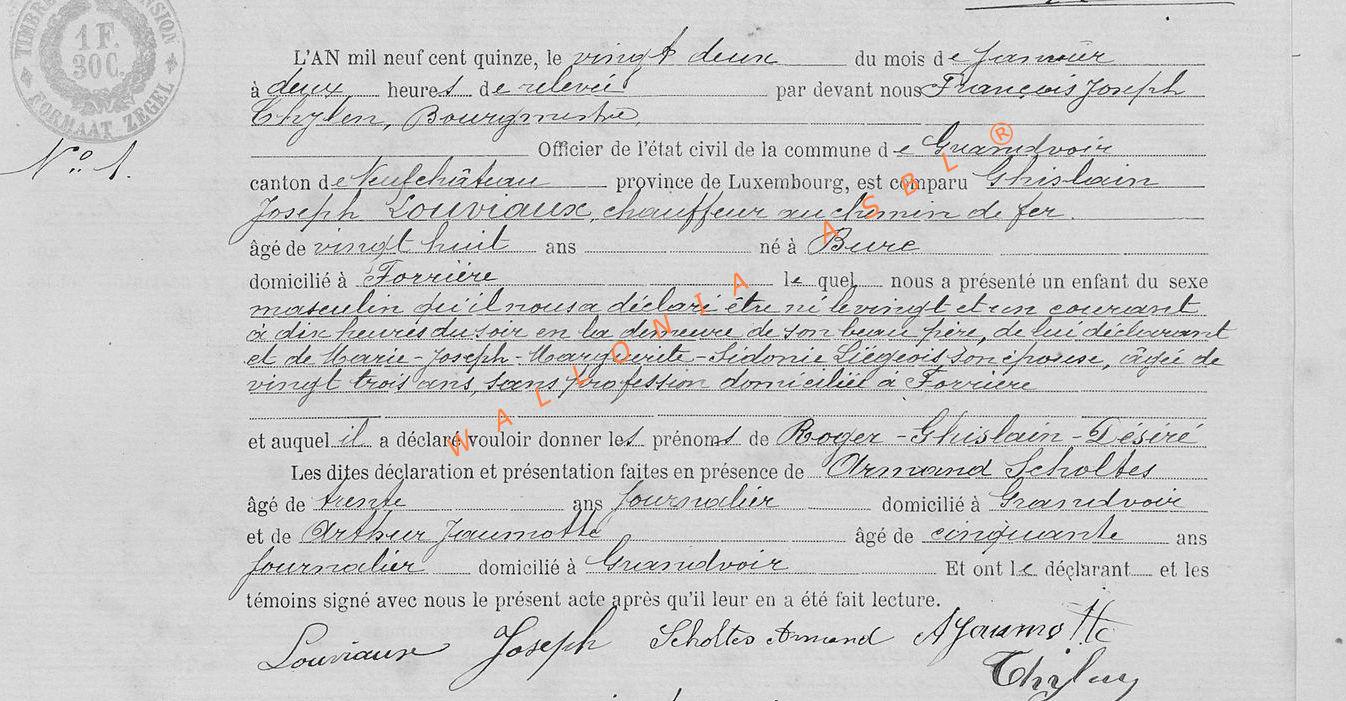 TIMBRE DIMENSION
1 F.
30 C.
FORMAAT ZEGEL
L'AN mil neuf cent quinze, le vingt deux du mois de Janvier
à deux heures de relevée par devant nous François Joseph
Thylen, Bourgmestre,
Officier de l'état civil de la commune de Grandvoir
N° 1.
canton de Neufchâteau province de Luxembourg, est comparu Ghislain
Joseph Louviaux, chauffeur au chemin de fer.
âgé de vingt huit ans né à Bure
domicilié à Forrière le quel nous a présenté un enfant du sexe
masculin qu'il nous a déclaré être né le vingt et un courant
à dix heures du soir en la demeure de son beau père, de lui déclarant
et de Marie-Joseph-Marguerite-Sidonie Liégeois son épouse, âgée de
vingt trois ans, sans profession domiciliée à Forrière
et auquel il a déclaré vouloir donner les prénoms de Roger-Ghislain-Désiré
Les dites déclaration et présentation faites en présence de Armand Scholtes
âgé de trente ans journalier domicilié à Grandvoir
et de Arthur Jaumotte âgé de cinquante ans
journalier domicilié à Grandvoir Et ont le déclarant et les
témoins signé avec nous le présent acte après qu'il leur en a été fait lecture.
Louviaux Joseph Scholtes Armand A Jaumotte
WALLONIA ASBL ®